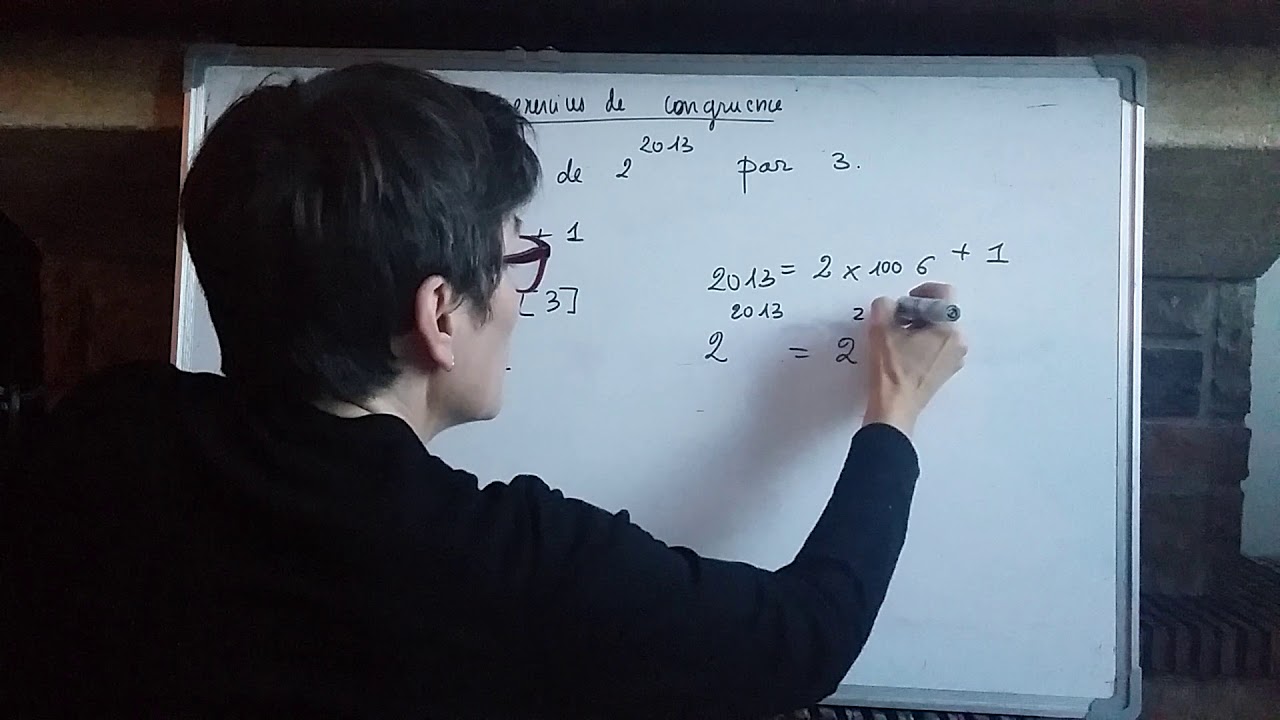 exercices de congruence
de 2^2013 par 3.
+ 1
[3]
2013 = 2 x 1006 + 1
2^2013 = 2^2